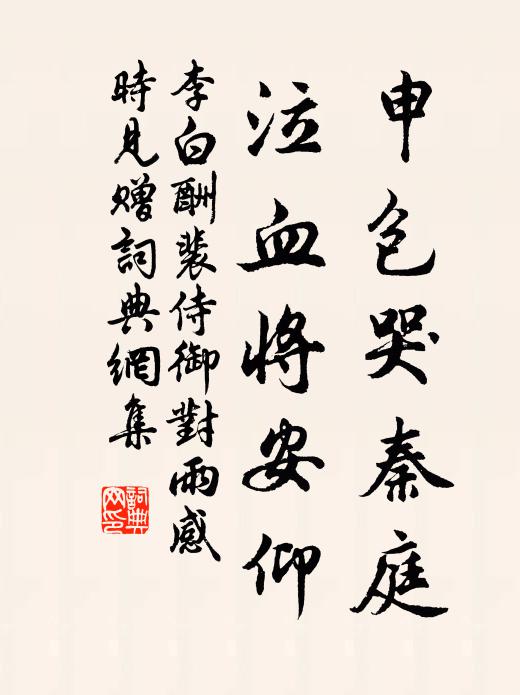 申包哭秦庭
泣血將安仰
李白酬裴侍御對雨感
時見贈詞典網集
詞典
网印